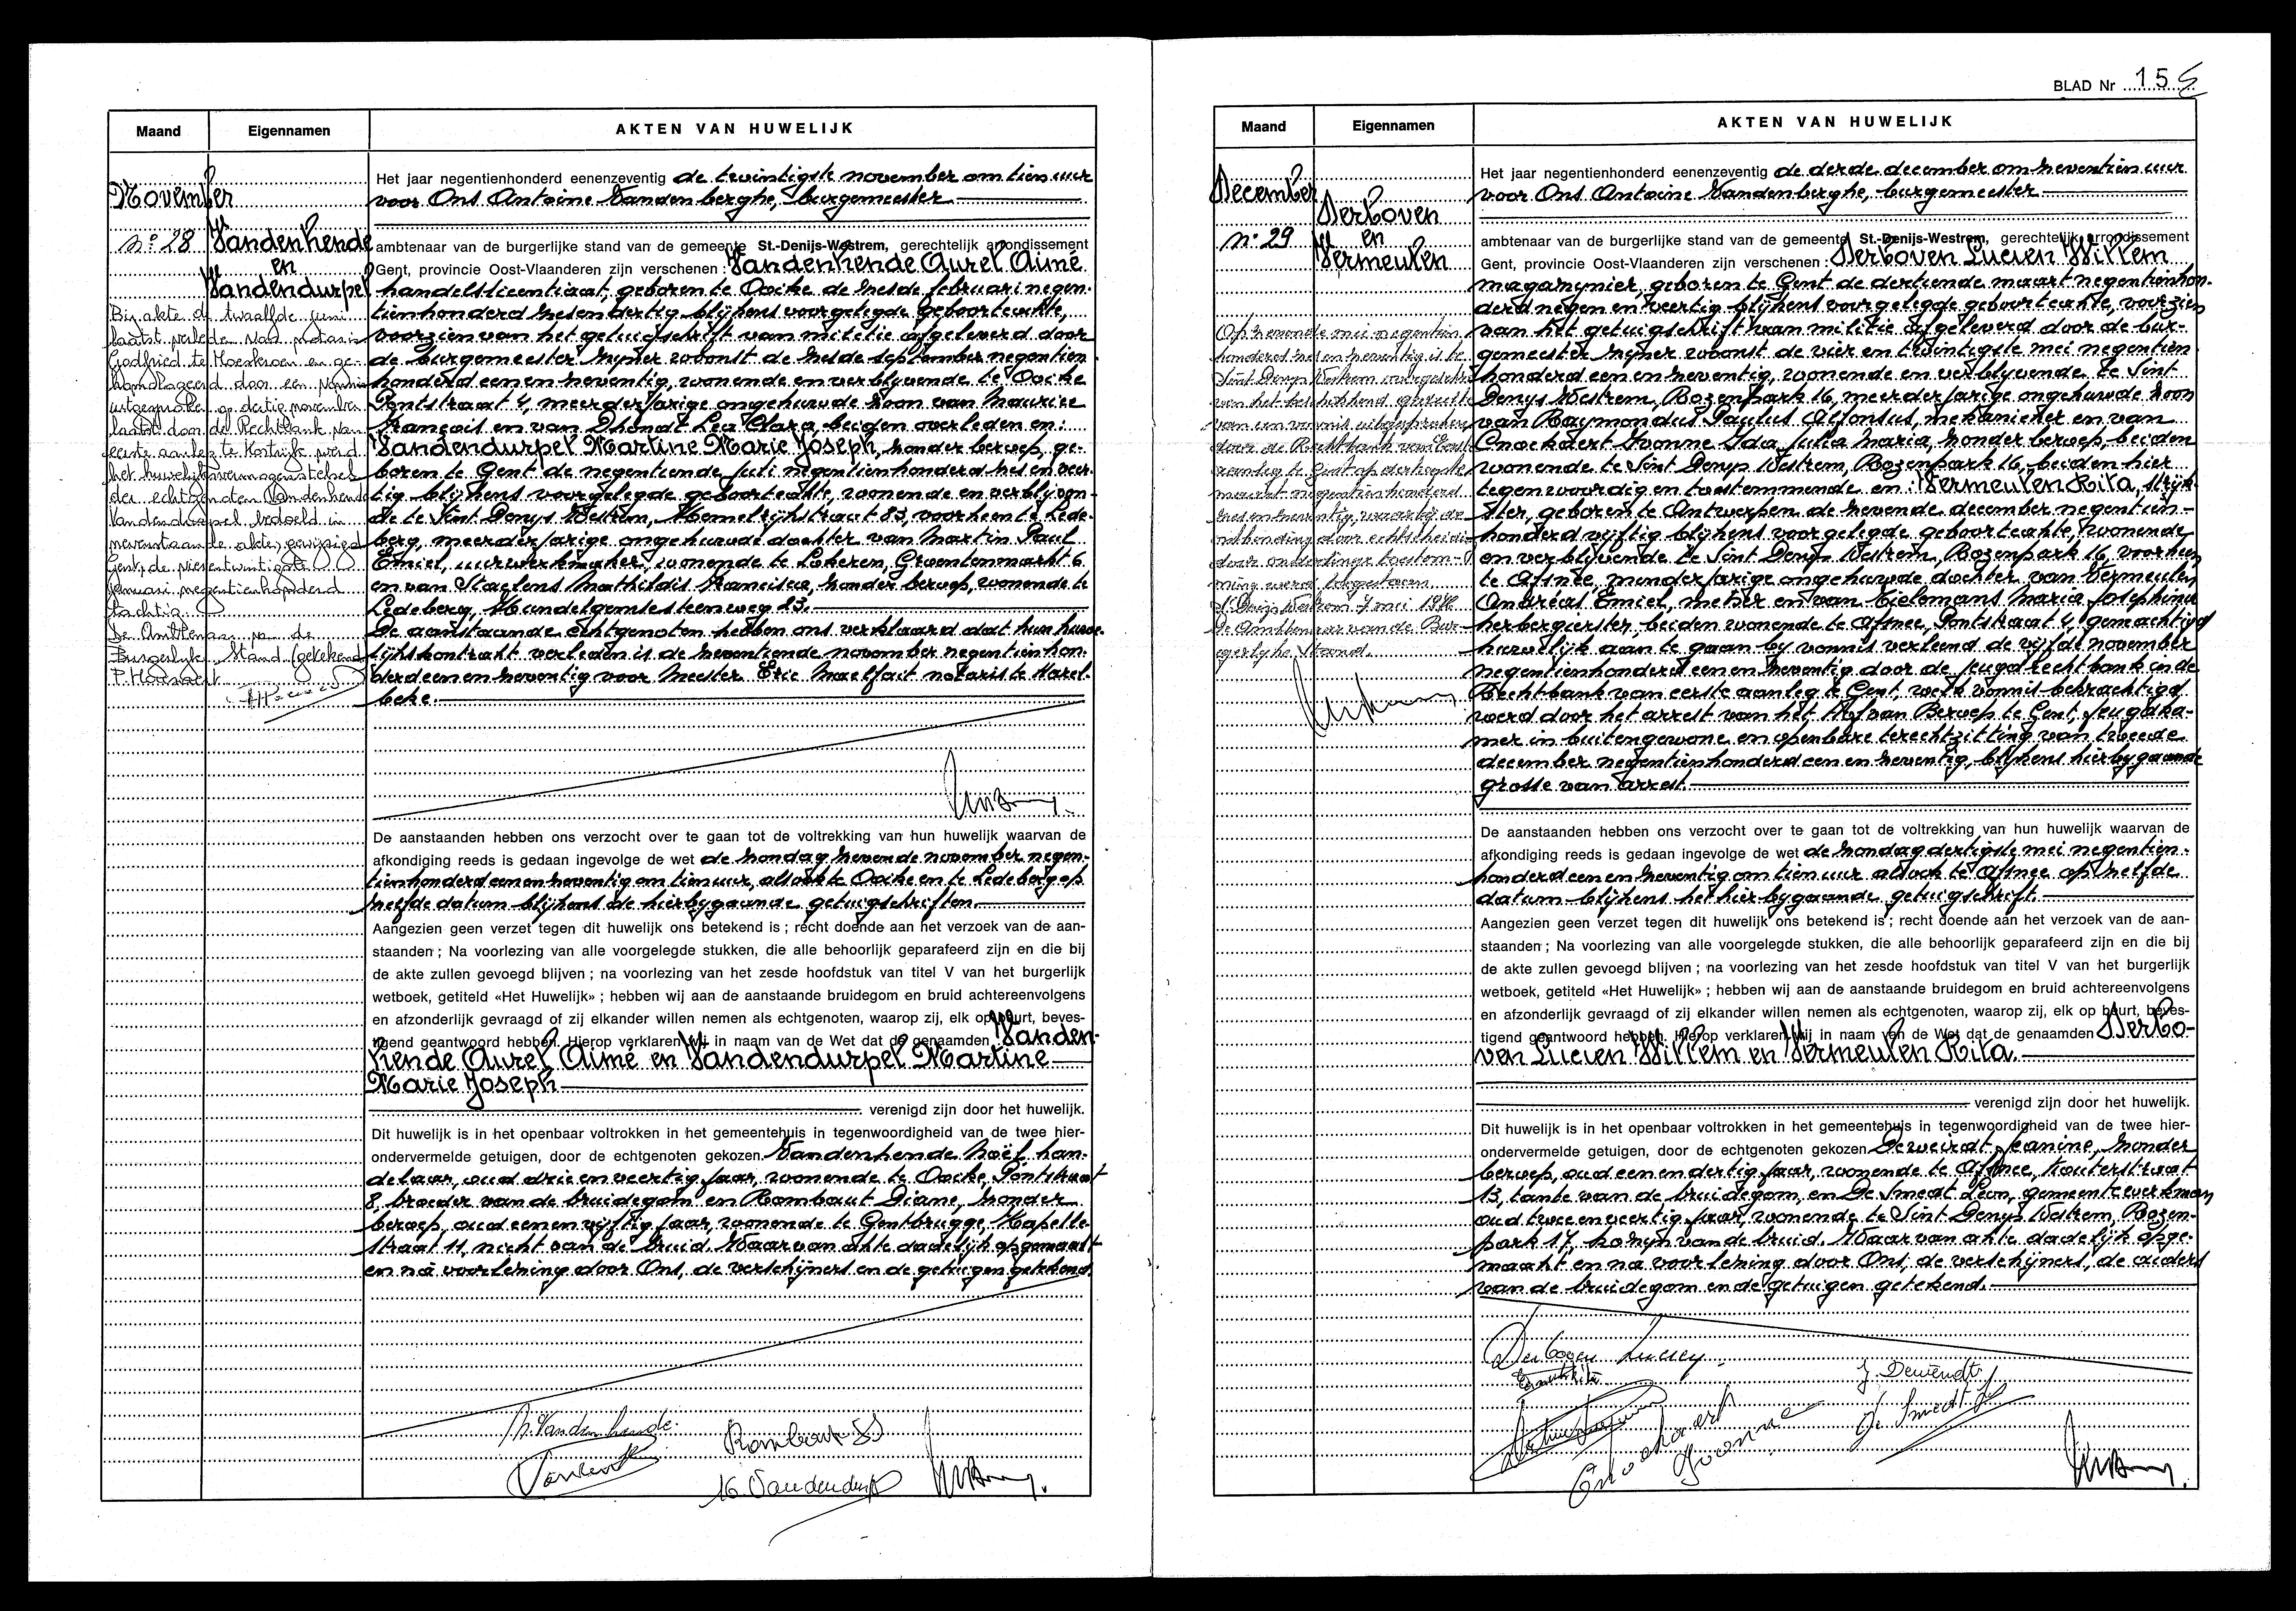 Maand
Eigennamen
AKTEN VAN HUWELIJK
November
n° 28
Vandenhende
en
Vandendurpel
Bij akte de twaalfde juni
laatst verleden voor notaris
Godfried te Moeskroen en ge-
homologeerd door een vonnis
uitgesproken op dertig november
laatst door de Rechtbank van
eerste aanleg te Kortrijk werd
het huwelijksvermogenstelsel
der echtgenoten Vandenhende
Vandendurpel bedoeld in
nevenstaande akte, gewijzigd
Gent, de vierentwintigste
januari negentienhonderd
tachtig.
De Ambtenaar van de
Burgerlijke Stand (getekend
Het jaar negentienhonderd eenenzeventig de twintigste november om tien uur
voor Ons Antoine Vandenberghe, burgemeester
ambtenaar van de burgerlijke stand van de gemeente St.-Denijs-Westrem, gerechtelijk arrondissement
Gent, provincie Oost-Vlaanderen zijn verschenen : Vandenhende Aurel Aimé
handelslicentiaat, geboren te Ooike de zesde februari negen-
tienhonderd zesendertig blijkens voorgelegde geboorteakte,
voorzien van het getuigschrift van militie afgeleverd door
de burgemeester zijner woonst de zesde september negentien
honderd een en zeventig, wonende en verblijvende te Ooike
Pontstraat 4, meerderjarige ongehuwde zoon van Maurice
François en van Dhondt Lea Clara, beiden overleden en :
Vandendurpel Martine Marie Joseph, zonder beroep, ge-
boren te Gent de negentiende juli negentienhonderd zes en veer-
tig blijkens voorgelegde geboorteakte, wonende en verblijven-
de te Sint Denys Westrem, Hemelrijkstraat 83, voorheen te Lede-
berg, meerderjarige ongehuwde dochter van Martin Paul
Emiel, uurwerkmaker, wonende te Lokeren, Groentenmarkt 6
en van Staelens Mathildis Francisca, zonder beroep, wonende te
Ledeberg, Hundelgemsesteenweg 23.
De aanstaande echtgenoten hebben ons verklaard dat hun huwe-
lijkskontrakt verleden is de zeventiende november negentienhon-
derd een en zeventig voor Meester Eric Maelfait notaris te Harel-
beke.
De aanstaanden hebben ons verzocht over te gaan tot de voltrekking van hun huwelijk waarvan de
afkondiging reeds is gedaan ingevolge de wet de zondag zevende november negen-
tienhonderd een en zeventig om tien uur, alsook te Ooike en te Ledeberg op
zelfde datum blijkens de hierbygaande getuigschriften.
Aangezien geen verzet tegen dit huwelijk ons betekend is ; recht doende aan het verzoek van de aan-
staanden ; Na voorlezing van alle voorgelegde stukken, die alle behoorlijk geparafeerd zijn en die bij
de akte zullen gevoegd blijven ; na voorlezing van het zesde hoofdstuk van titel V van het burgerlijk
wetboek, getiteld «Het Huwelijk» ; hebben wij aan de aanstaande bruidegom en bruid achtereenvolgens
en afzonderlijk gevraagd of zij elkander willen nemen als echtgenoten, waarop zij, elk op beurt, beves-
tigend geantwoord hebben. Hierop verklaren wij in naam van de Wet dat de genaamden Vanden-
hende Aurel Aimé en Vandendurpel Martine
Marie Joseph
verenigd zijn door het huwelijk.
Dit huwelijk is in het openbaar voltrokken in het gemeentehuis in tegenwoordigheid van de twee hier-
ondervermelde getuigen, door de echtgenoten gekozen. Vandenhende Noël han-
delaar, oud drie en veertig jaar, wonende te Ooike, Pontstraat
8, broeder van de bruidegom en Rombaut Diane, zonder
beroep, oud een en vijftig jaar, wonende te Gentbrugge Kapelle-
straat 11, nicht van de bruid. Waarvan akte dadelijk opgemaakt
en na voorlezing door Ons, de verschijners en de getuigen getekend.
N. Vandenhende.
Rombaut D
M. Vandendurpel
BLAD Nr 15
Maand
Eigennamen
AKTEN VAN HUWELIJK
December
n° 29
Derboven
en
Vermeulen
Op zevende mei negentien
honderd zes en zeventig is te
Sint Denys Westrem overgeschreven
van het beschikkend gedeelte
van een vonnis uitgesproken
door de Rechtbank van Eerste
aanleg te Gent op der
maart negentienhonderd
zes en zeventig, waarbij de
ontbinding door echtschei-
ding door onderlinge toestem-
ming werd toegestaan
St Denijs Westrem 7 mei 1976
De Ambtenaar van de Bur-
gerlyke Stand.
Het jaar negentienhonderd eenenzeventig de derde december om zeventien uur
voor Ons Antoine Vandenberghe, burgemeester
ambtenaar van de burgerlijke stand van de gemeente St.-Denijs-Westrem, gerechtelijk arrondissement
Gent, provincie Oost-Vlaanderen zijn verschenen : Derboven Lucien Willem
magazynier, geboren te Gent de dertiende maart negentienhon-
derd negen en veertig blijkens voorgelegde geboorteakte, voorzien
van het getuigschrift van militie afgeleverd door de bur-
gemeester zijner woonst de vier en twintigste mei negentien
honderd een en zeventig, wonende en verblijvende te Sint
Denys Westrem, Rozenpark 16, meerderjarige ongehuwde zoon
van Raymondus Paulus Alfonsus, mekanieker en van
Cnockaert Ivonne Ida Julia Maria, zonder beroep, beiden
wonende te Sint Denys Westrem, Rozenpark 16, beiden hier
tegenwoordig en toestemmende en : Vermeulen Rita, strijk-
ster, geboren te Antwerpen de zevende december negentien-
honderd vijftig blijkens voorgelegde geboorteakte, wonende
en verblijvende te Sint Denys Westrem, Rozenpark 16, voorheen
te Afsnee, minderjarige ongehuwde dochter van Vermeulen
Andréas Emiel, metser en van Tielemans Maria Josephina
herbergierster, beiden wonende te Afsnee, Pontstraat 4, gemachtigd
huwelijk aan te gaan by vonnis verleend de vijfde november
negentienhonderd een en zeventig door de jeugdrechtbank in de
Rechtbank van eerste aanleg te Gent, welk vonnis bekrachtigd
werd door het arrest van het Hof van Beroep te Gent, jeugdka-
mer in buitengewone en openbare terechtzitting van tweede
december negentienhonderd een en zeventig, blijkens hierbygaande
grosse van arrest.
De aanstaanden hebben ons verzocht over te gaan tot de voltrekking van hun huwelijk waarvan de
afkondiging reeds is gedaan ingevolge de wet de zondag dertigste mei negentien-
honderd een en zeventig om tien uur alsook te Afsnee op zelfde
datum blijkens het hierbygaande getuigschrift.
Aangezien geen verzet tegen dit huwelijk ons betekend is ; recht doende aan het verzoek van de aan-
staanden ; Na voorlezing van alle voorgelegde stukken, die alle behoorlijk geparafeerd zijn en die bij
de akte zullen gevoegd blijven ; na voorlezing van het zesde hoofdstuk van titel V van het burgerlijk
wetboek, getiteld «Het Huwelijk» ; hebben wij aan de aanstaande bruidegom en bruid achtereenvolgens
en afzonderlijk gevraagd of zij elkander willen nemen als echtgenoten, waarop zij, elk op beurt, beves-
tigend geantwoord hebben. Hierop verklaren wij in naam van de Wet dat de genaamden Derbo-
ven Lucien Willem en Vermeulen Rita.
verenigd zijn door het huwelijk.
Dit huwelijk is in het openbaar voltrokken in het gemeentehuis in tegenwoordigheid van de twee hier-
ondervermelde getuigen, door de echtgenoten gekozen Deweirdt Jeanine, zonder
beroep, oud een en dertig jaar, wonende te Afsnee, Kouterstraat
13, tante van de bruidegom, en De Smedt Leon, gemeentewerkman
oud twee en veertig jaar, wonende te Sint Denys Westrem, Rozen-
park 17, kozijn van de bruid. Waarvan akte dadelijk opge-
maakt en na voorlezing door Ons, de verschijners, de ouders
van de bruidegom en de getuigen getekend.
Derboven Lucien
J. Deweirdt
De Smedt
Cnockaert
Ivonne